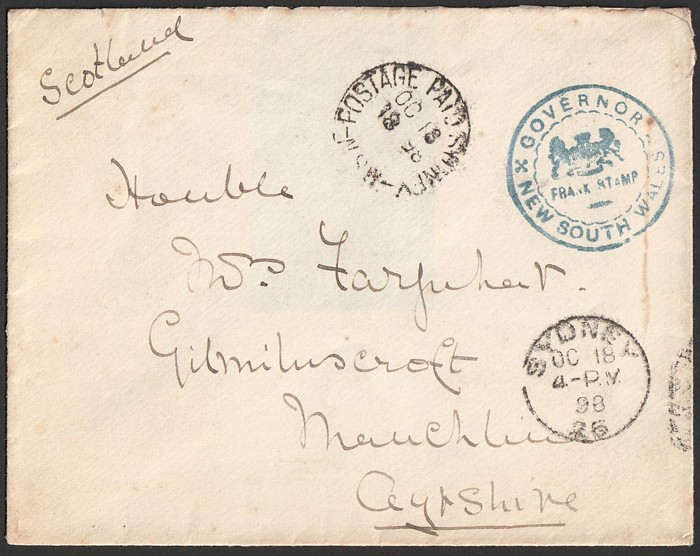 Scotland
POSTAGE PAID SYDNEY N.S.W
OC 18
18
98
GOVERNOR
FRANK STAMP
NEW SOUTH WALES
Honble
Mrs Farquhar.
Gilmilnscroft
Mauchline
Ayrshire
SYDNEY
OC 18
4-P.M.
98
26